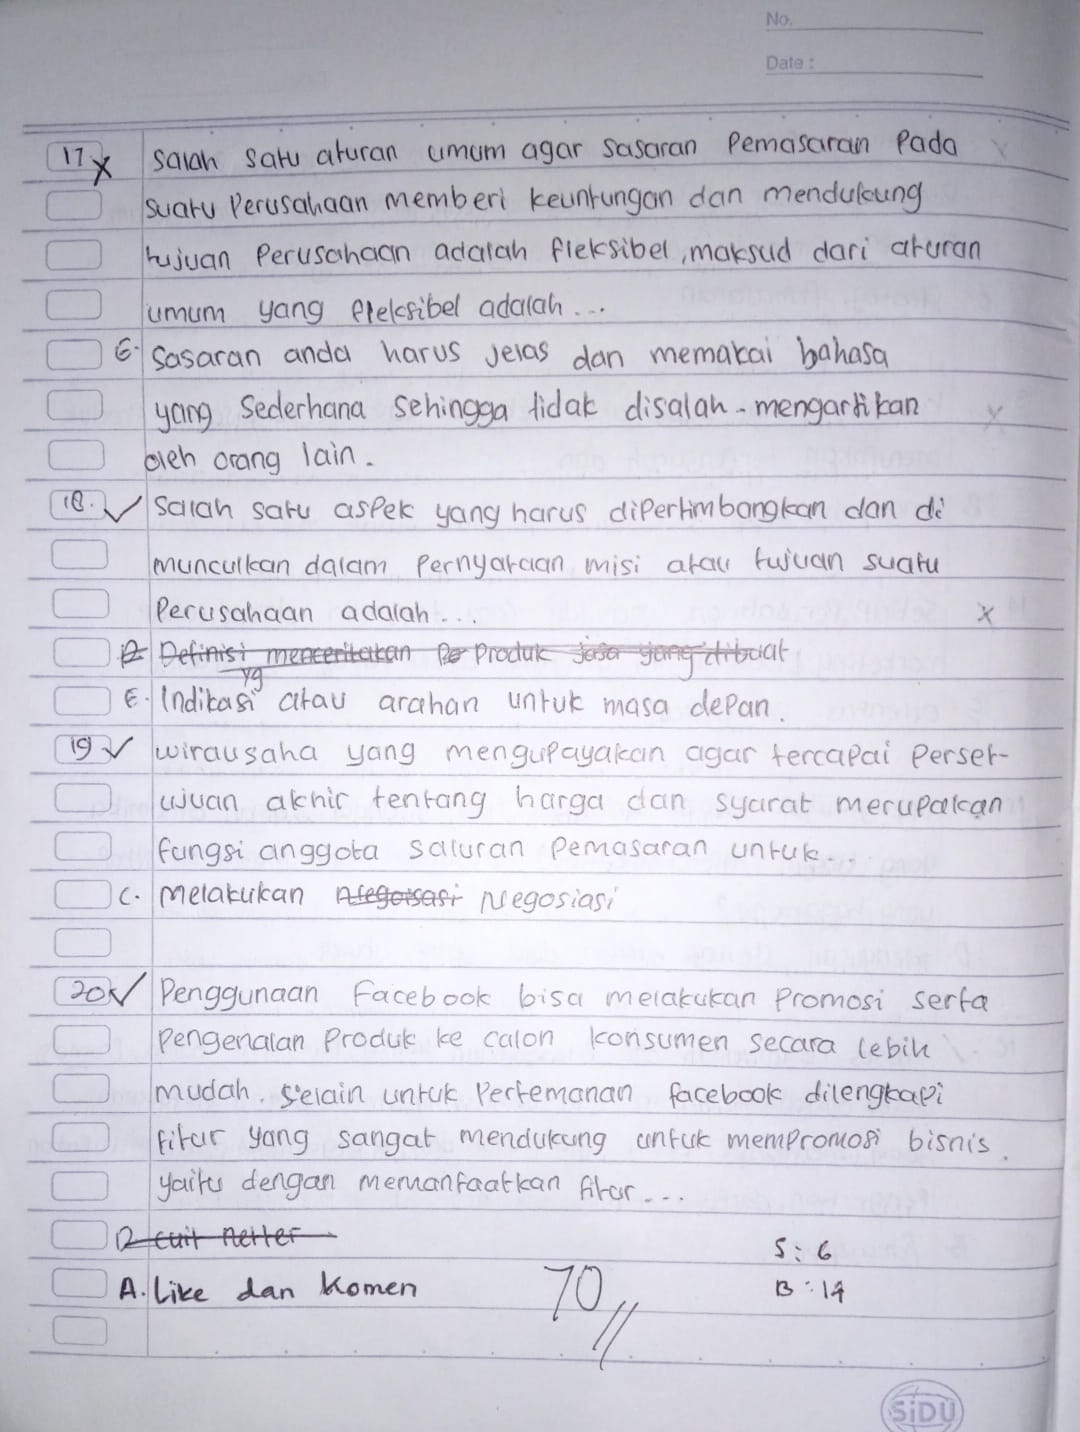 No.
Date :
17 x Salah satu aturan umum agar sasaran Pemasaran Pada
suatu Perusahaan memberi keuntungan dan mendukung
tujuan Perusahaan adalah fleksibel, maksud dari aturan
umum yang fleksibel adalah...
E. Sasaran anda harus Jelas dan memakai bahasa
yang Sederhana Sehingga tidak disalah-mengartikan
oleh orang lain.
18. ✓ Salah satu aspek yang harus dipertimbangkan dan di
munculkan dalam Pernyataan misi atau tujuan suatu
Perusahaan adalah...
D Definisi menceritakan Pe Produk jasa yang dibuat
yg
E. Indikasi atau arahan untuk masa depan.
19 ✓ wirausaha yang mengupayakan agar tercapai Perset-
ujuan akhir tentang harga dan syarat merupakan
fungsi anggota saluran Pemasaran untuk...
C. Melakukan Negoisasi Negosiasi
20 ✓ Penggunaan Facebook bisa melakukan Promosi serta
Pengenalan Produk ke calon konsumen secara lebih
mudah. Selain untuk Pertemanan facebook dilengkapi
fitur yang sangat mendukung untuk mempromosi bisnis.
yaitu dengan memanfaatkan fitur...
D cuit netter
S : 6
A. Like dan Komen 70 B : 14
SiDU